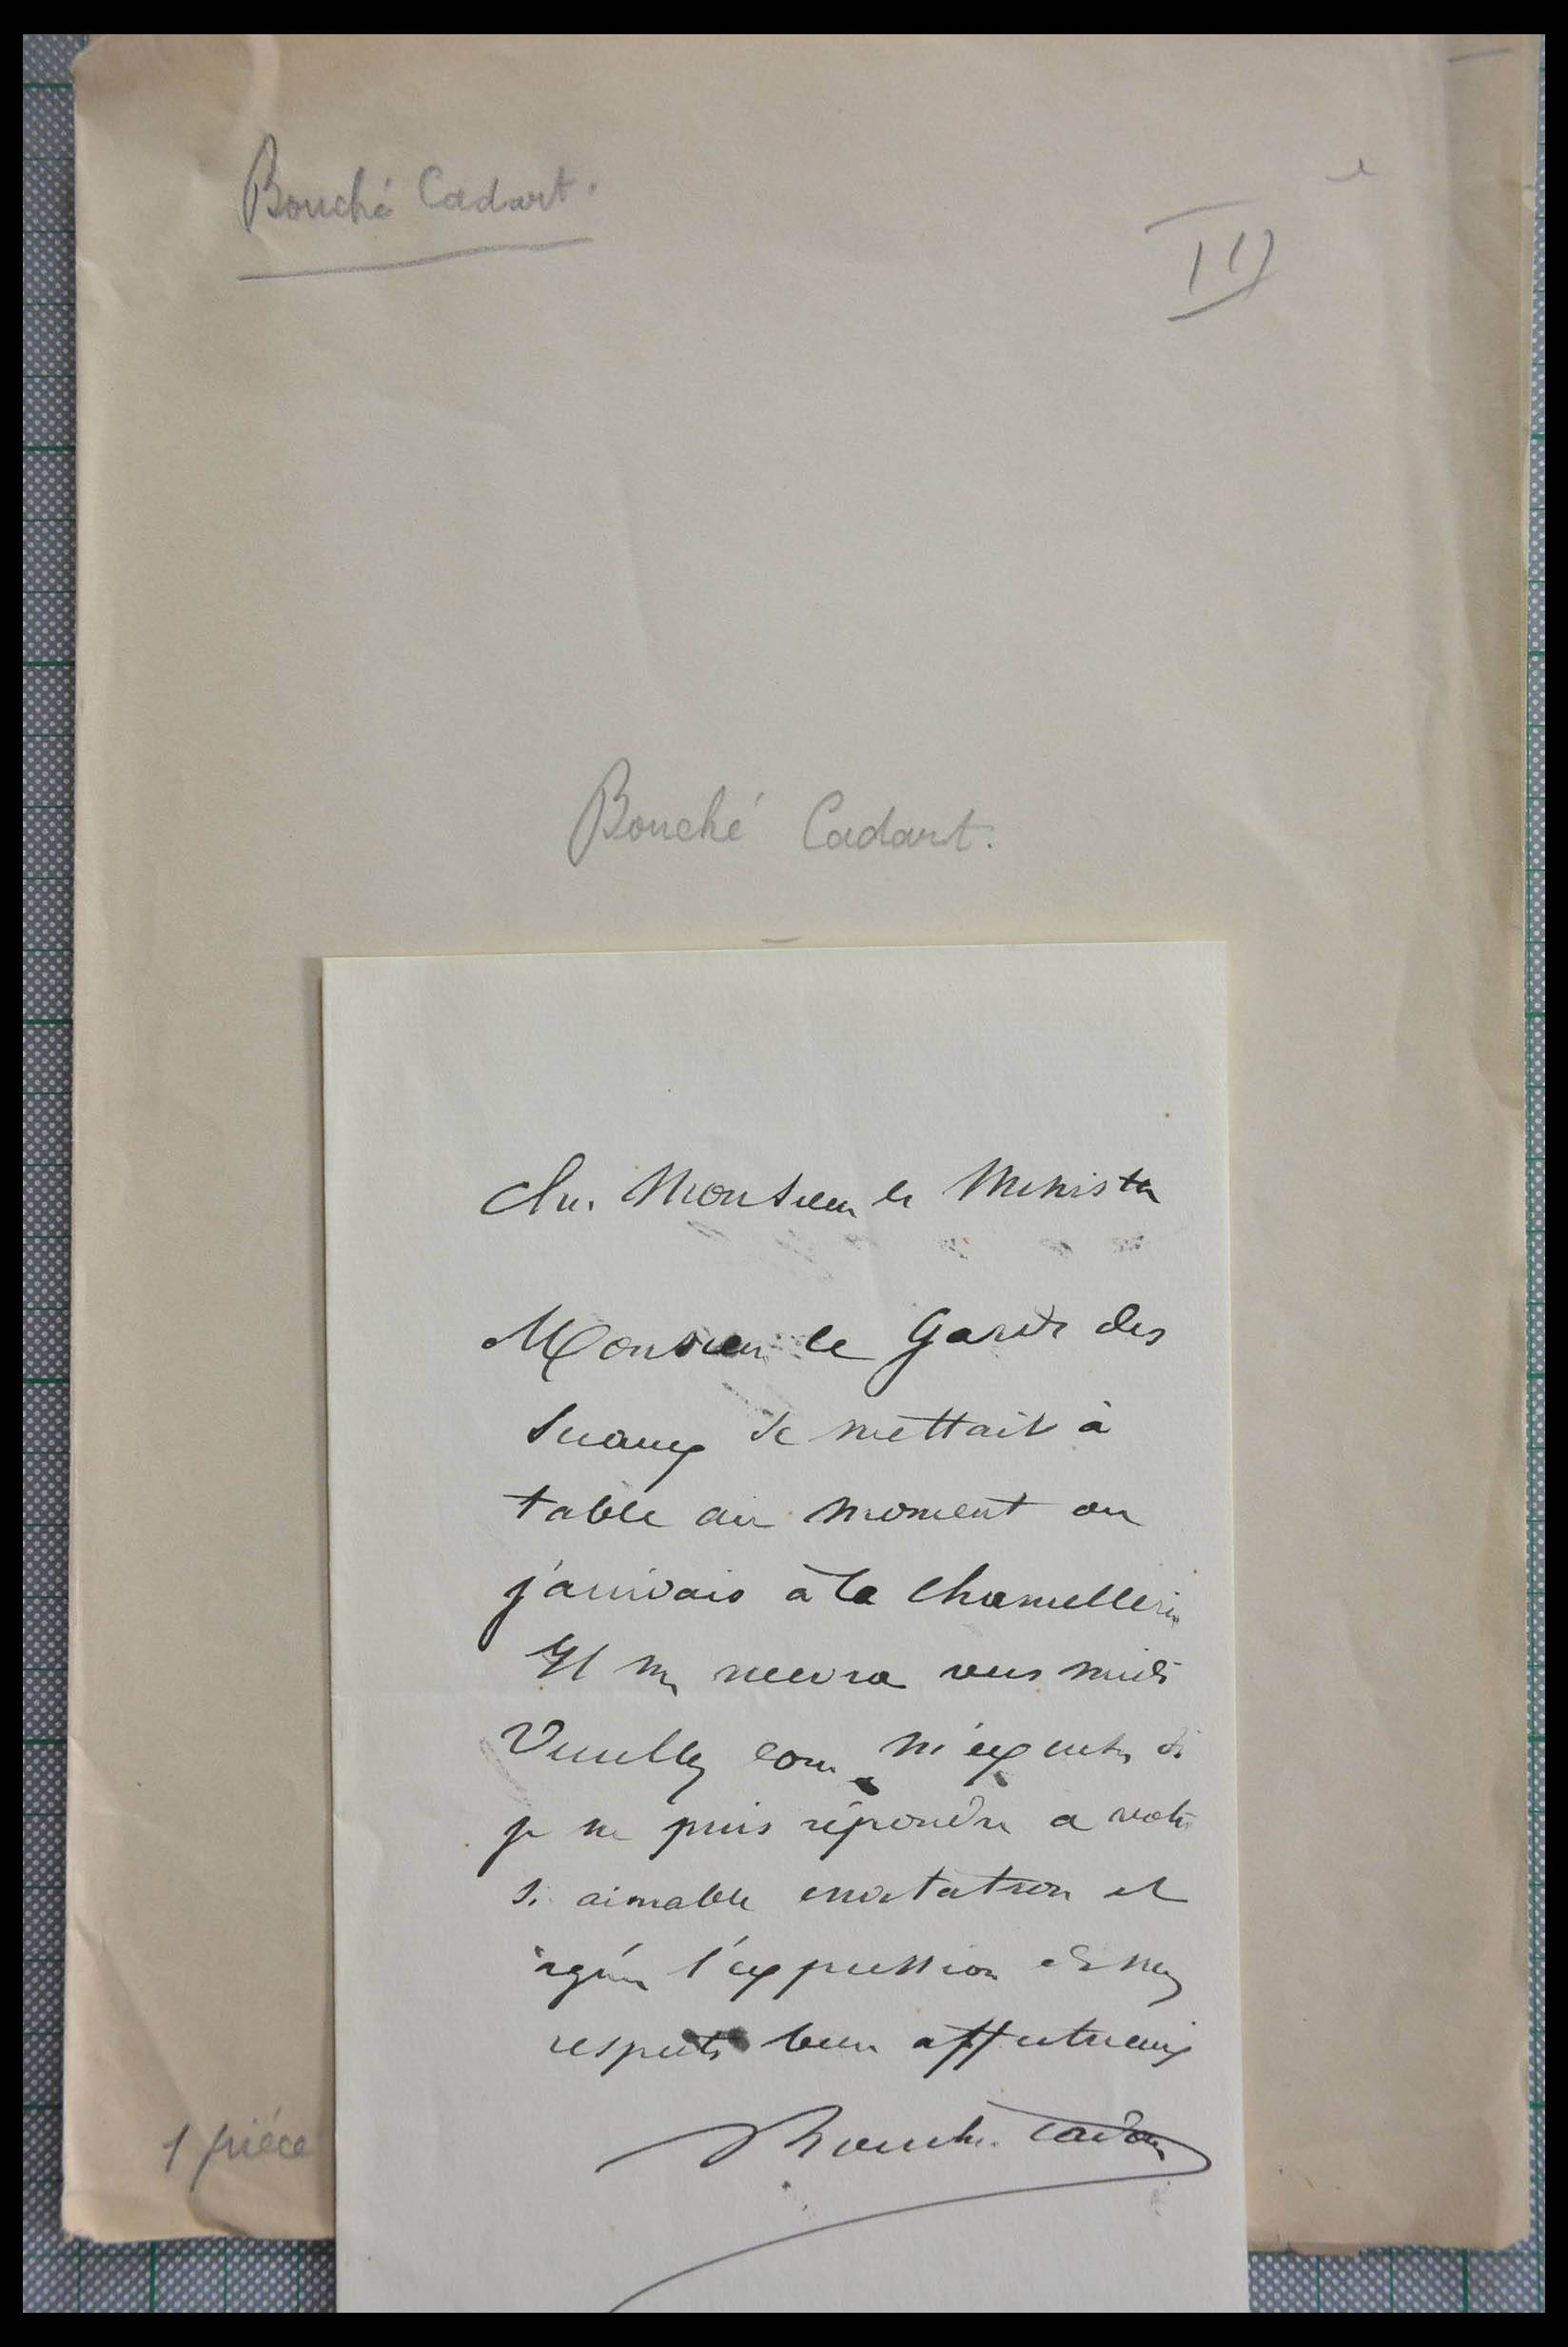 Bouché Cadart.
III
Bouché Cadart.
Cher Monsieur le Ministre
Monsieur le Garde des
Sceaux se mettait à
table au moment ou
j'arrivais à la Chancellerie
Il me recevra vers midi
Veuillez donc m'excuser si
je ne puis répondre a votre
si aimable invitation et
agréer l'expression de mes
respects bien affectueux
Bouché Cadart
1 pièce